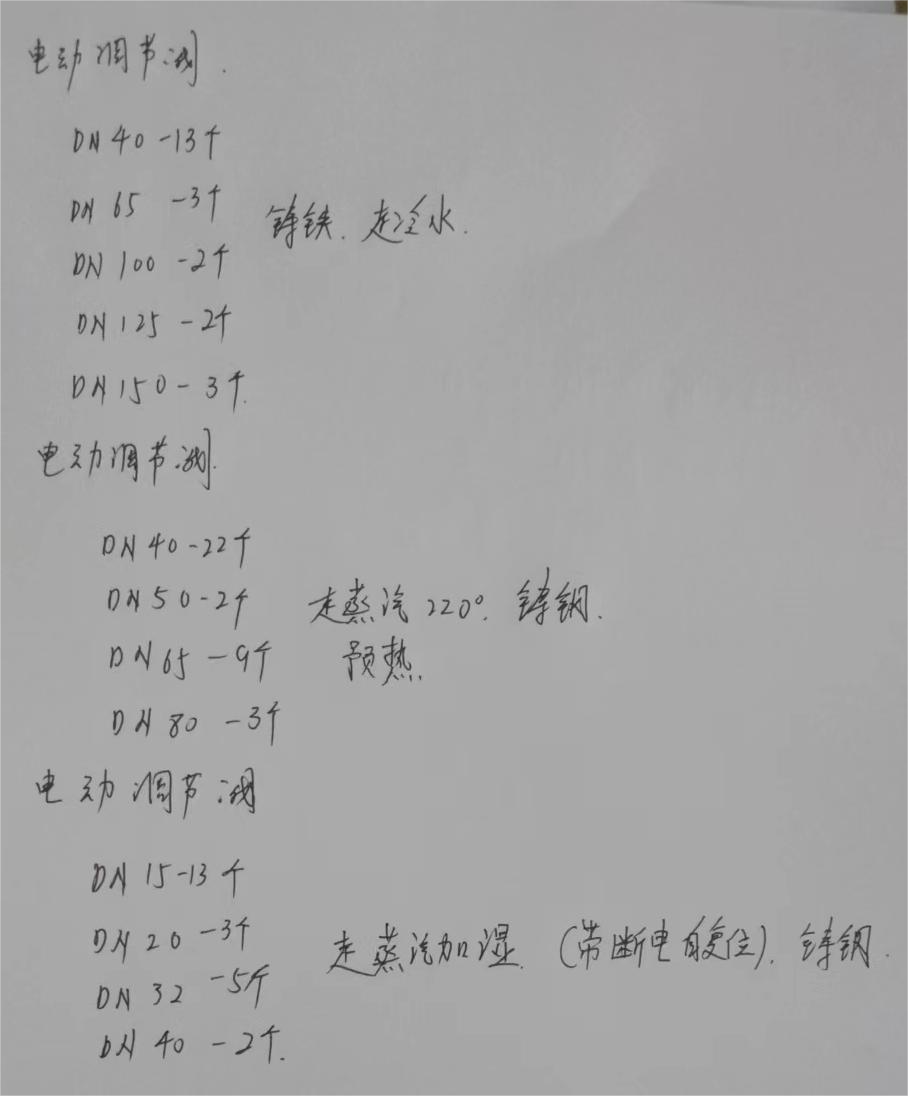 电动调节阀.
DN 40 -13个
DN 65 -3个
铸铁. 走冷水.
DN 100 -2个
DN 125 -2个
DN 150 - 3个.
电动调节阀.
DN 40 -22个
DN 50 -2个
走蒸汽 220°. 铸钢.
DN 65 -9个
预热.
DN 80 -3个
电动调节阀
DN 15 -13个
DN 20 -3个
走蒸汽加湿. (带断电自复位). 铸钢.
DN 32 -5个
DN 40 -2个.